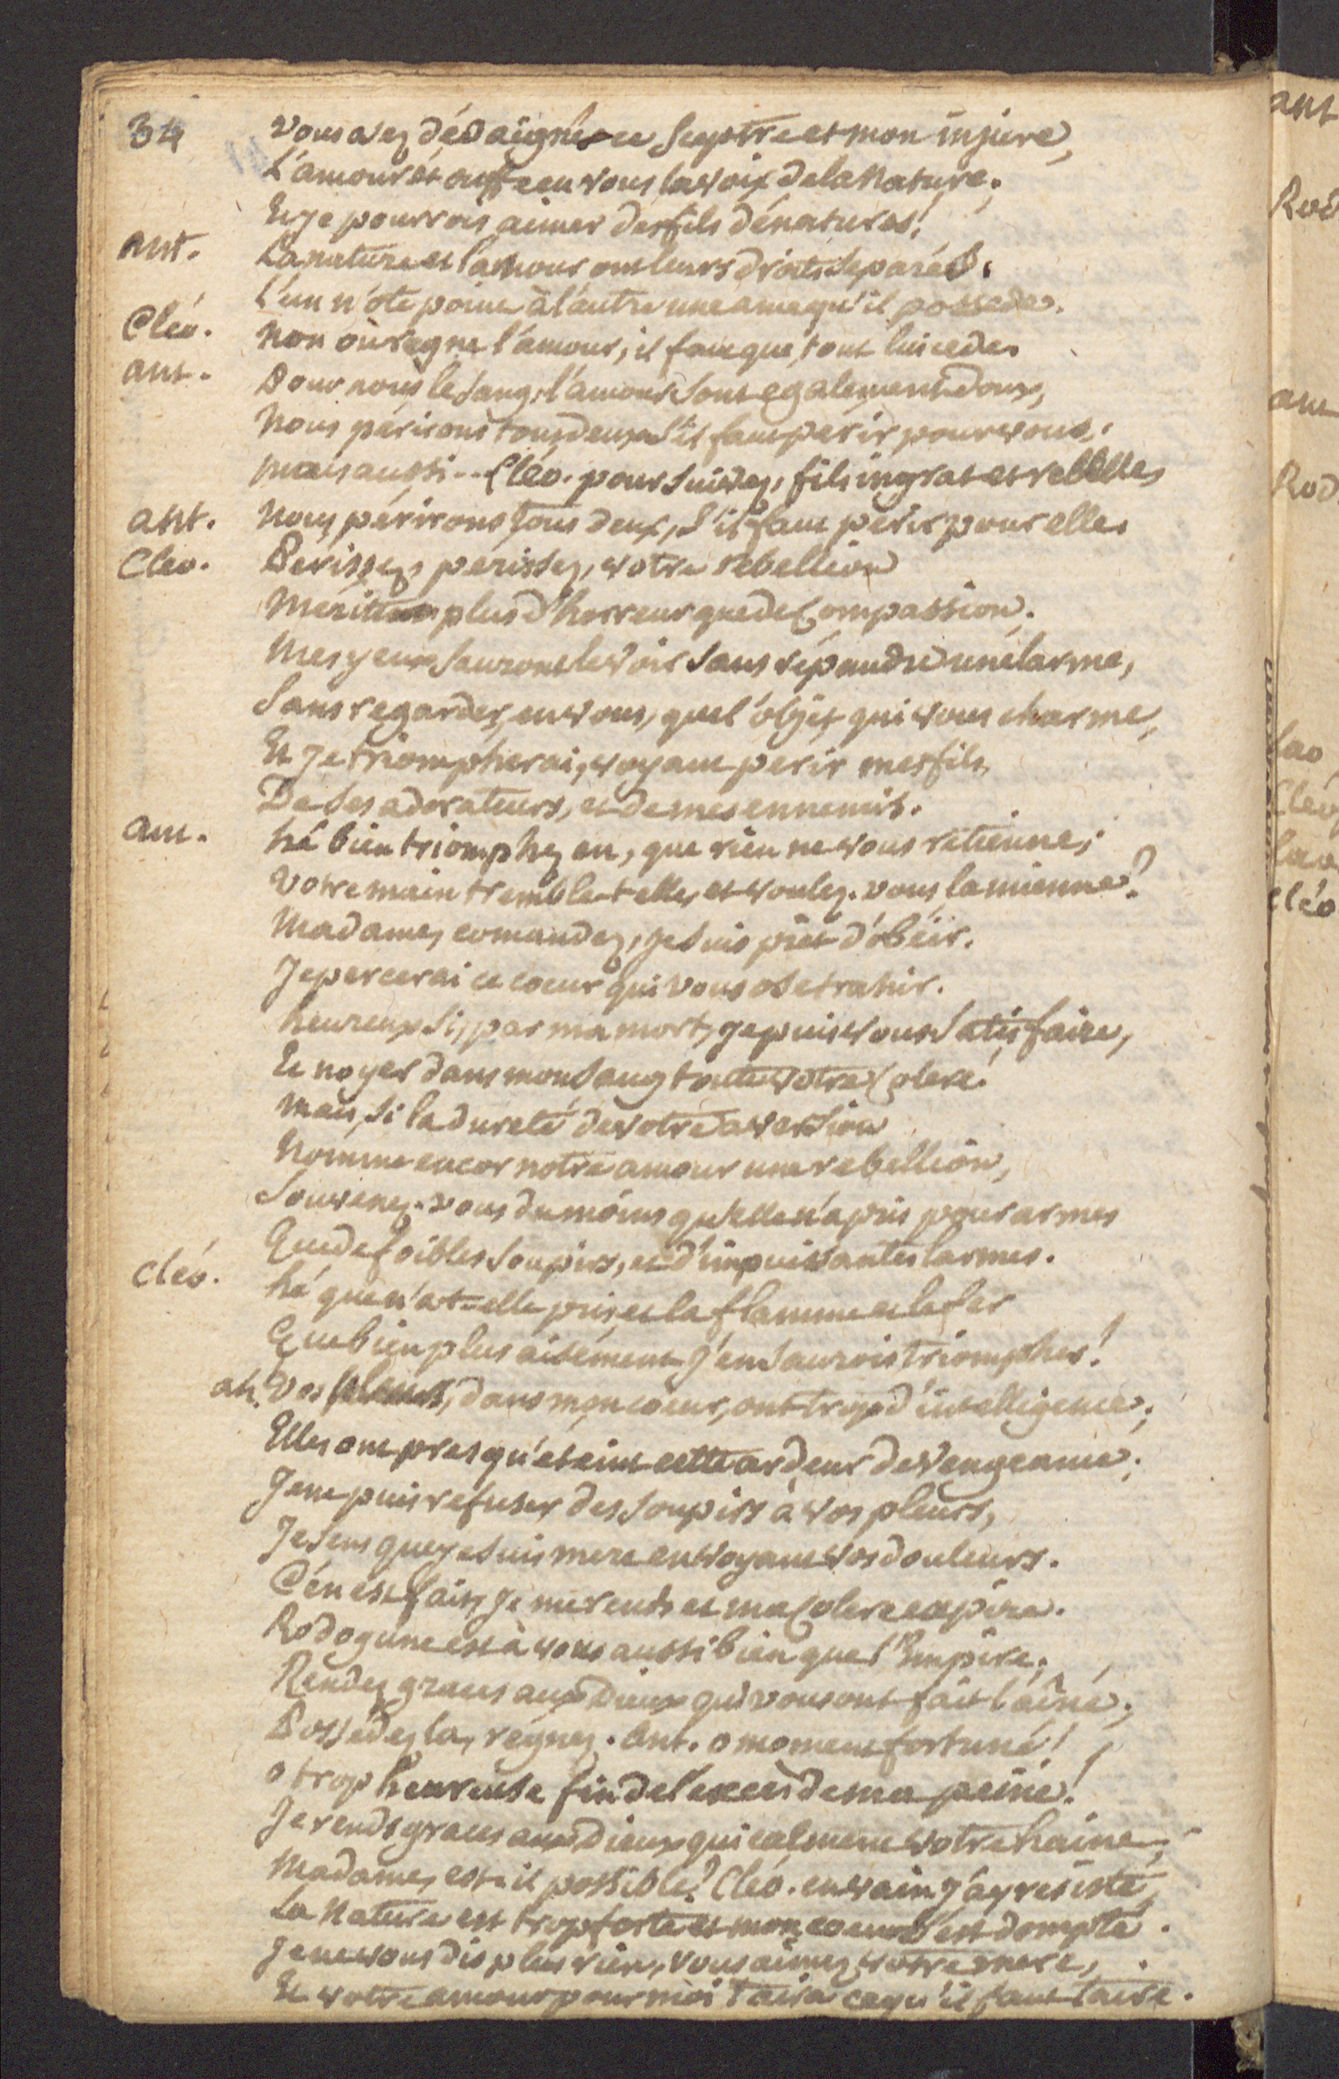 34 vous avez dédaigné ce sceptre et mon injure,
L'amour étouffe en vous la voix de la nature;
Et je pourrois aimer des fils dénaturés!
ant. La nature et l'amour ont leurs droits separés.
L'un n'ote point à l'autre une ame qu'il possede.
Cléo. non où regne l'amour, il faut que tout lui cede.
ant. Pour nous le sang, l'amour sont egalement doux,
Nous périrons tous deux s'il faut perir pour vous.
mais aussi.. Cléo. poursuivez, fils ingrat et rebelle,
ant. Nous périrons tous deux, s'il faut perir pour elle.
Cleo. Périssez, perissez, votre rebellion
Merite plus d'horreur que de Compassion.
Mes yeux sauront le voir sans répandre une larme,
Sans regarder, en vous, que l'objet qui vous charme,
Et je triompherai, voyant perir mes fils,
De ses adorateurs, et de mes ennemis.
ant. hé bien triomphez en, que rien ne vous retienne;
Votre main tremble-t-elle, et voulez-vous la mienne?
Madame, comandez, je suis prêt d'obéir.
Je percerai ce coeur qui vous ose trahir.
heureux si, par ma mort, je puis vous satisfaire,
Et noyer dans mon sang toute votre Colere.
Mais, si la dureté de votre aversion
Nomme encor notre amour une rebellion,
Souvenez-vous du moins qu'elle n'a pris pour armes
Que de foibles soupirs, et d'impuissantes larmes.
cléo. hé que n'a t-elle pris et la flamme et le fer
Que bien plus aisément j'en saurois triompher!
ah. Vos larmes, dans mon coeur, ont trop d'intelligence;
Elles ont presqu'éteint cette ardeur de vengeance;
Je ne puis refuser des soupirs à vos pleurs,
Je sens que je suis mere en voyant vos douleurs.
C'en est fait, je me rends et ma Colere expire.
Rodogune est à vous aussi bien que l'Empire;
Rendez graces aux Dieux qui vous ont fait l'aîné;
Possédez la, régnez. Ant. o moment fortuné!
o trop heureuse fin de l'exces de ma peine!
Je rends graces aux Dieux qui calment votre haine;
Madame, est-il possible? Cléo. en vain j'ay resisté,
La nature est trop forte et mon coeur s'est dompté.
Je ne vous dis plus rien, vous aimez votre mere,
Et votre amour pour moi taira ce qu'il faut taire.
ant
Rod
ant
Rod
Lao
Cleo
Lao
cléo